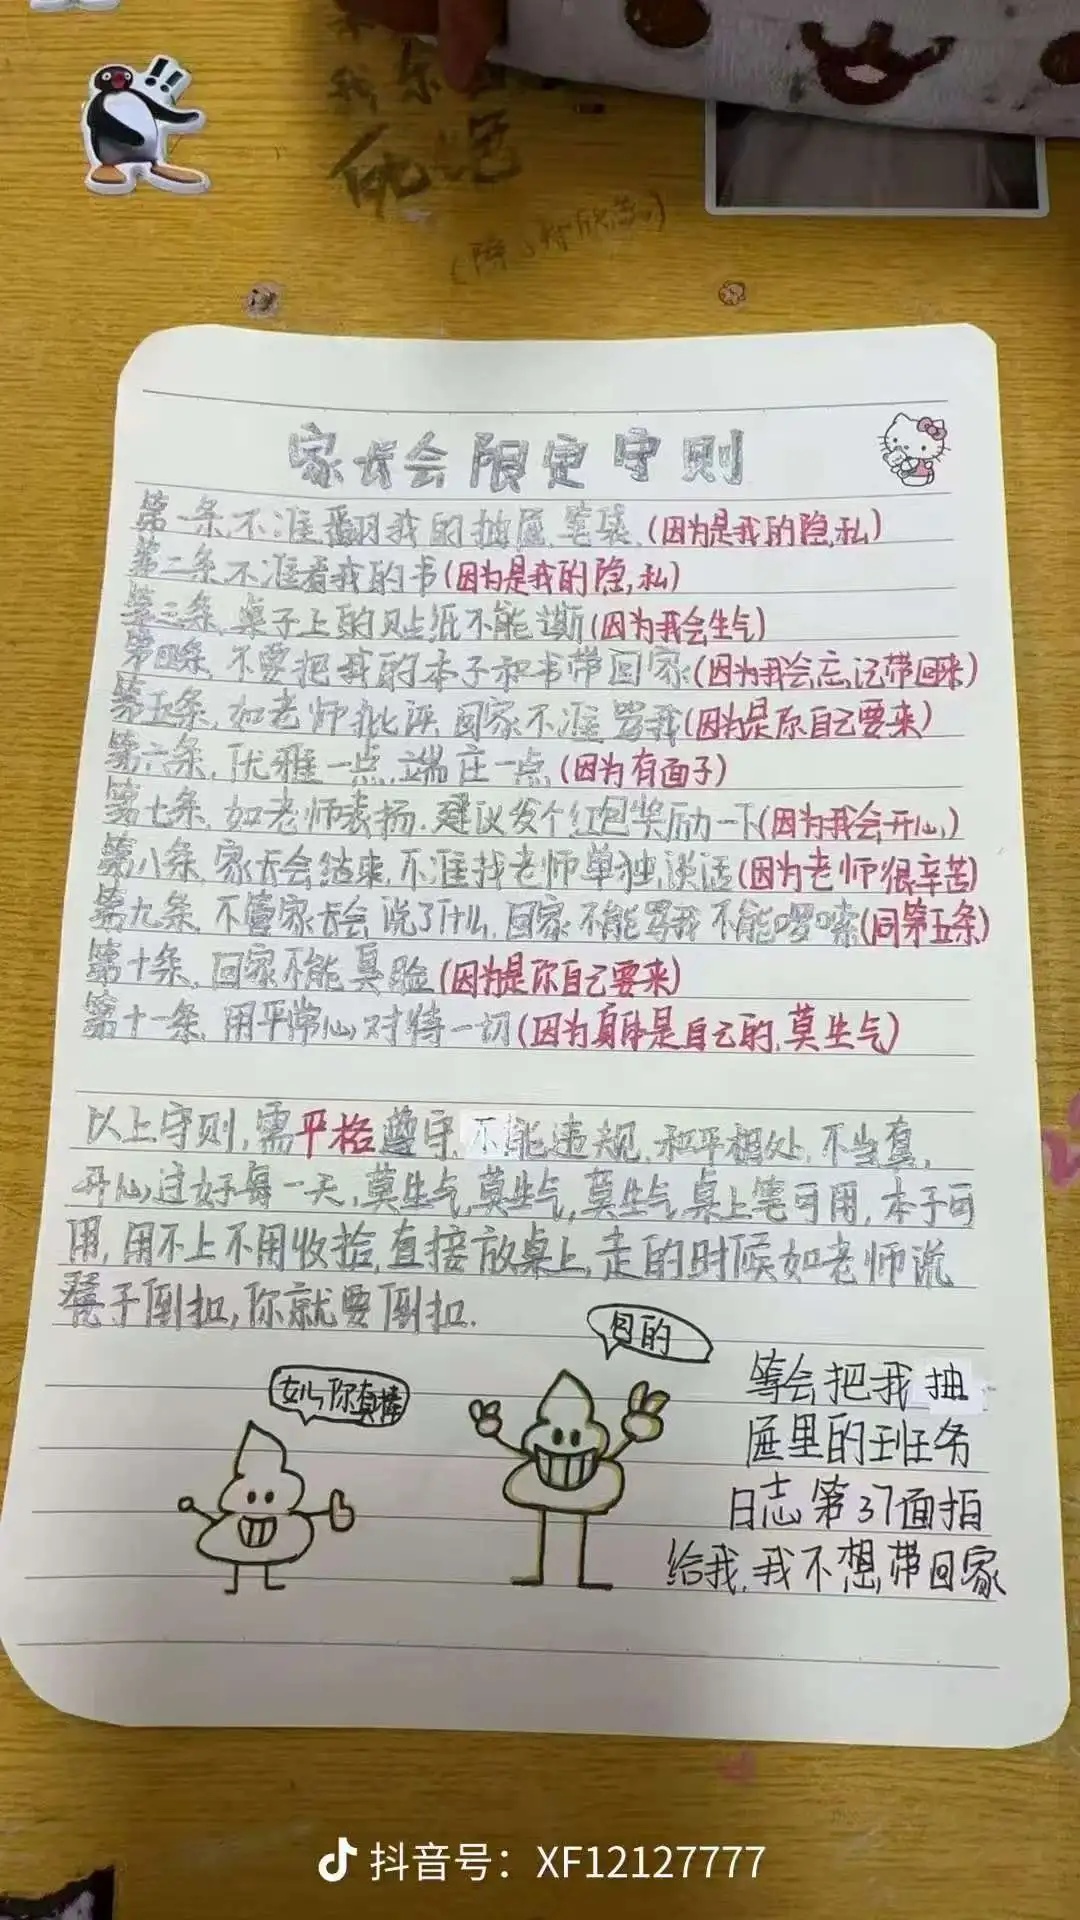 我
死
家长会限定守则
第一条,不准翻我的抽屉,笔袋,(因为是我的隐私)
第二条,不准看我的书(因为是我的隐私)
第三条,桌子上的贴纸不能撕(因为我会生气)
第四条,不要把我的本子和书带回家(因为我会忘记带回来)
第五条,如老师批评,回家不准骂我(因为是你自己要来)
第六条,优雅一点,端庄一点(因为有面子)
第七条,如老师表扬,建议发个红包奖励一下(因为我会开心)
第八条,家长会结束,不准找老师单独谈话(因为老师很辛苦)
第九条,不管家长会说了什么,回家不能骂我不能啰嗦(同第五条)
第十条,回家不能臭脸(因为是你自己要来)
第十一条,用平常心对待一切(因为身体是自己的,莫生气)
以上守则,需平格遵守,不能违规,和平相处,不当真,
开心过好每一天,莫生气,莫生气,莫生气,桌上笔可用,本子可
用,用不上不用收拾,直接放桌上,走的时候如老师说
凳子倒扣,你就要倒扣.
目的
女儿你真棒
等会把我抽
屉里的班务
日志第37面拍
给我,我不想带回家
抖音号：XF12127777